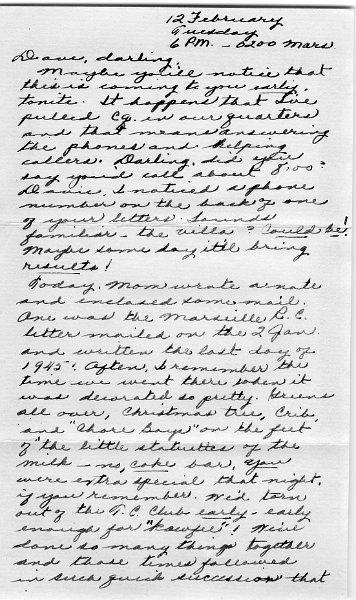 12 February
Tuesday
6 P.M. - 6200 Mars
Dave, darling,
Maybe you'll notice that
this is coming to you early,
tonite. It happens that I've
pulled Cq. in our quarters
and that means answering
the phones and helping
callers. Darling, did you
say you'd call about 8:00?
Davie, I noticed a phone
number on the back of one
of your letters. Sounds
familiar - the villa? Could be!
Maybe some day it'll bring
results!
Today, Mom wrote a note
and enclosed some mail.
One was the Marseille R.C.
letter mailed on the 2 Jan.
and written the last day of
1945! Often, I remember the
time we went there when it
was decorated so pretty. Greens
all over, Christmas tree, Crib
and "Chore Boys" on the feet
of the little statuettes of the
milk - no, coke bar. You
were extra special that night,
if you remember. We'd torn
out of the Club early - early
enough for "Kawfee"! We've
done so many things together
and those times followed
in such quick succession that